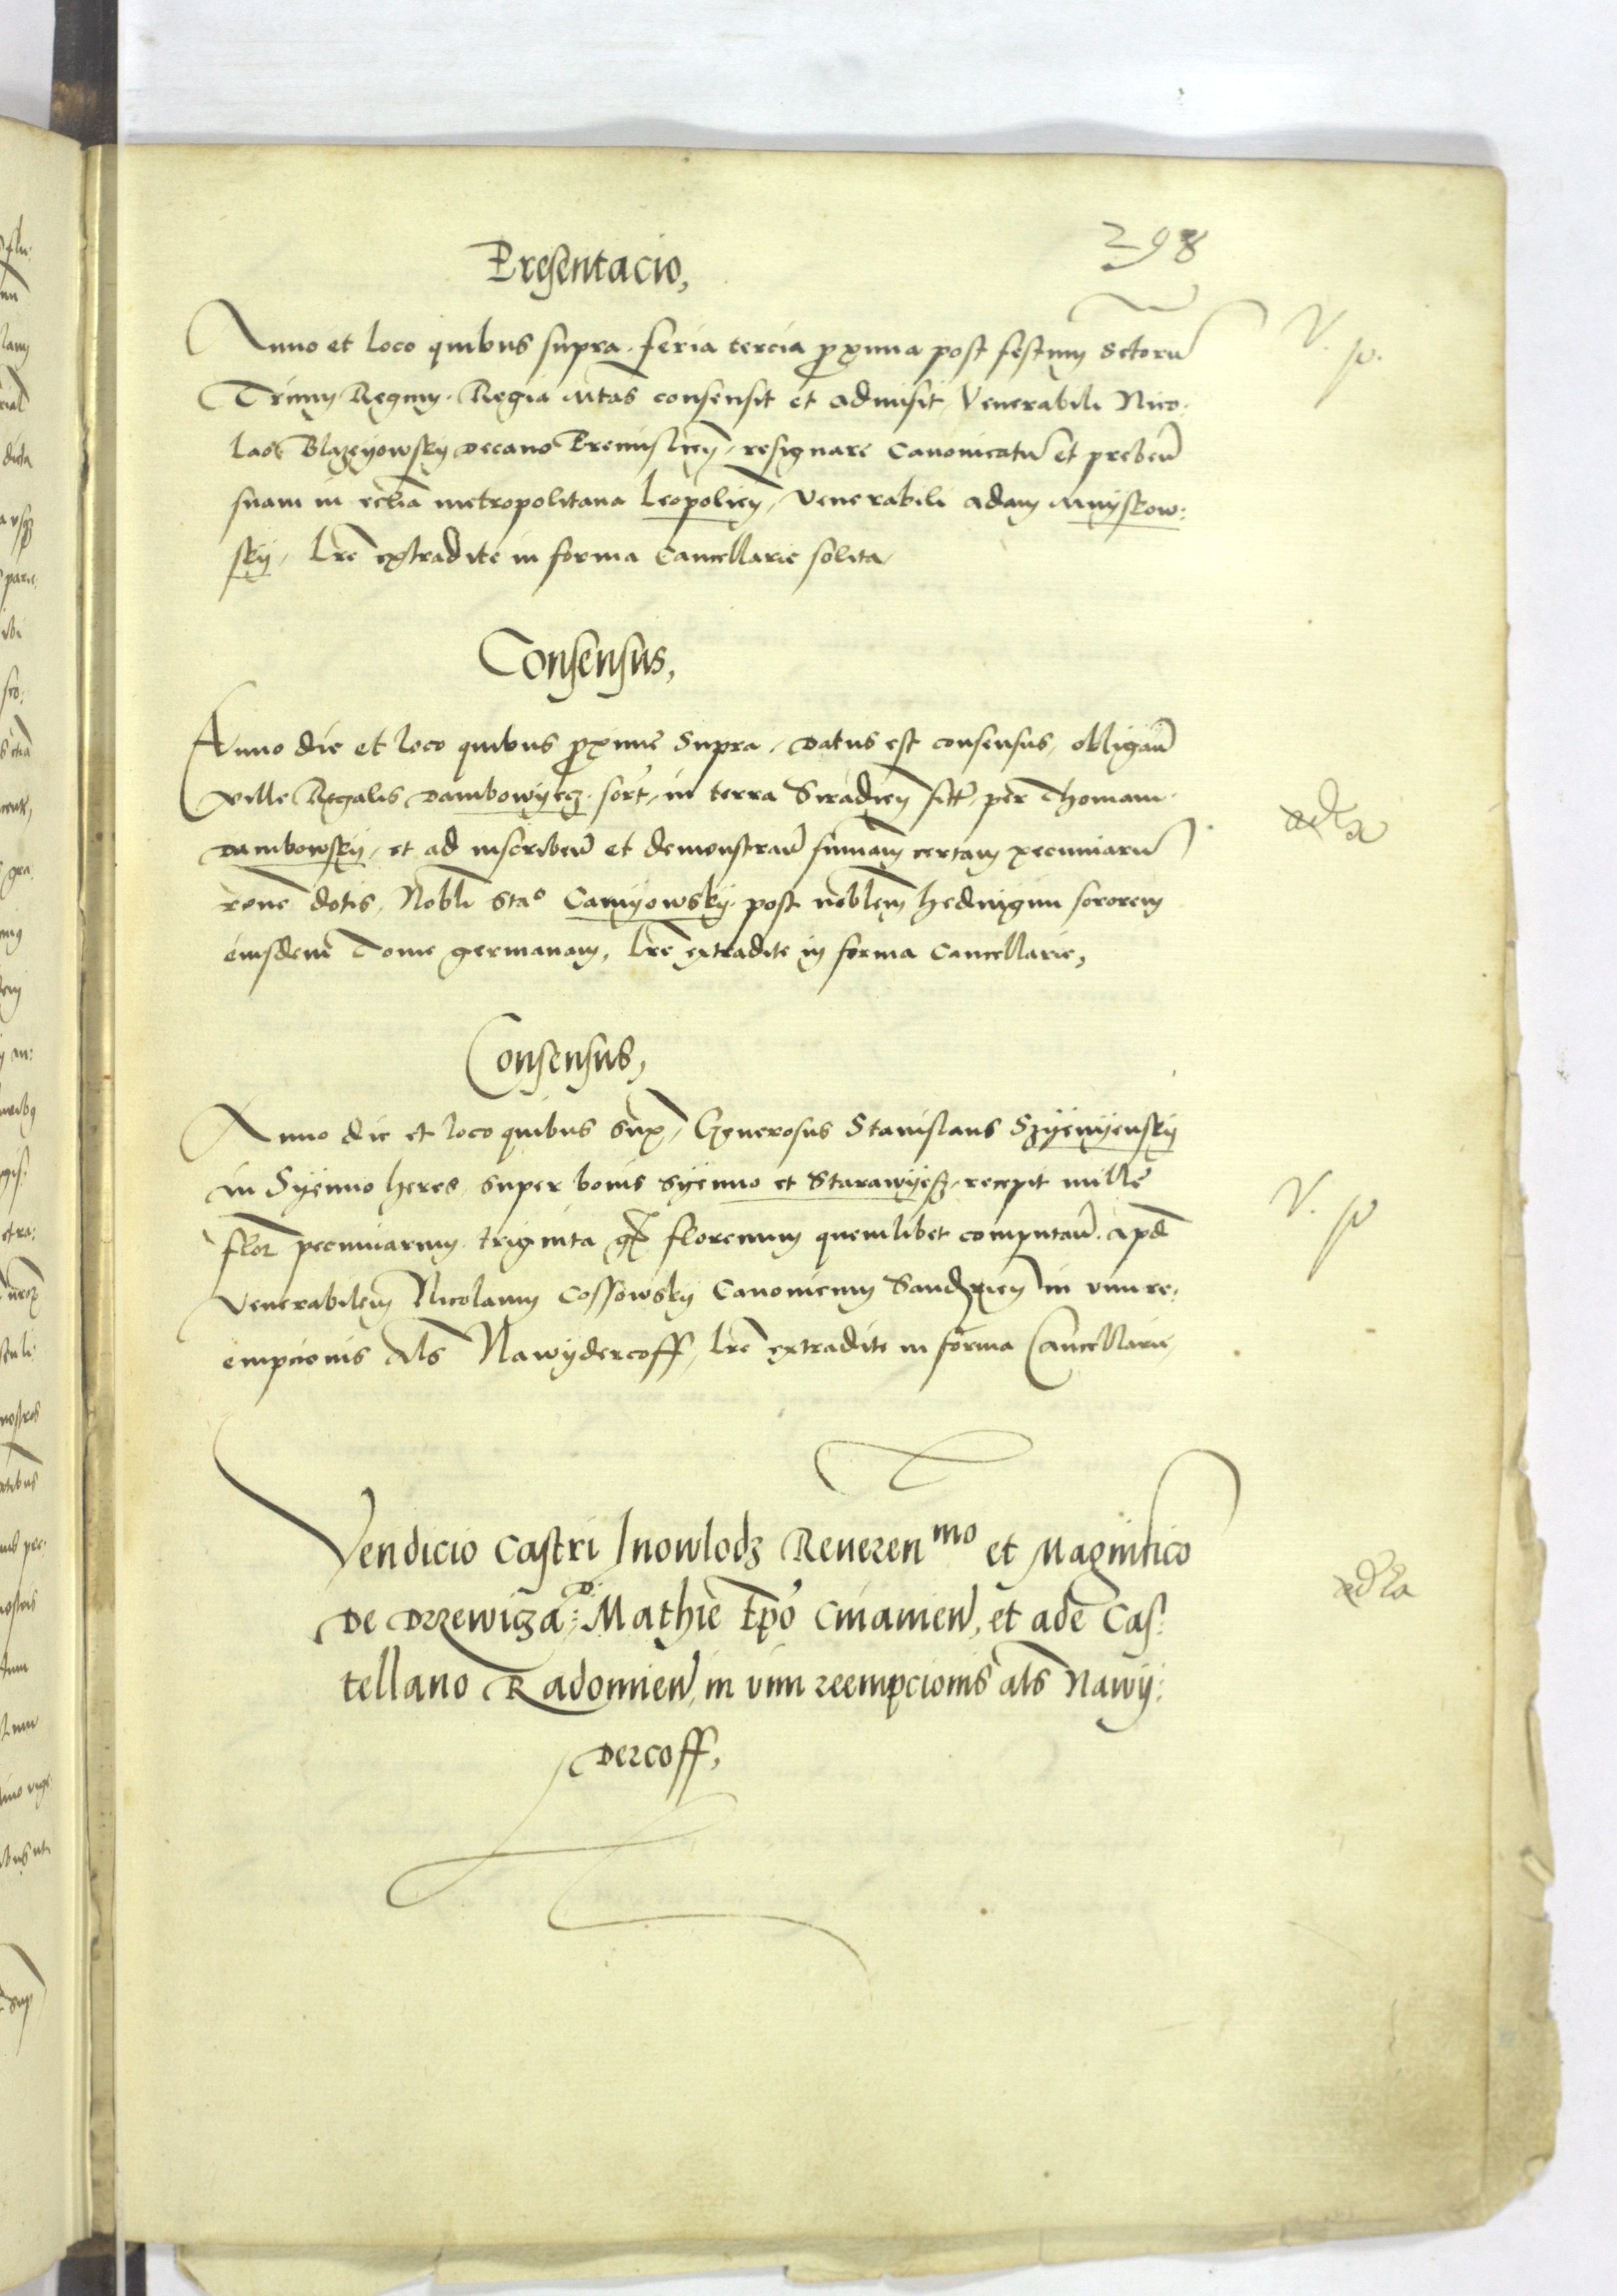 298
Presentacio,
Anno et loco quibus supra. feria tercia pxima post festum Sctoru
Trium Regum. Regia Mtas consensit et admisit, Venerabili Nico:
lao Blazeyowsky Decano Premislien, resignare Canonicatu et preben
suam in eclia metropolitana Leopolien, Venerabili Adam Myskow:
sky, Lre extradite in forma Cancellarie solita,
V. p.
Consensus,
Anno die et loco quibus pxime Supra, Datus est consensus, obligan
ville Regalis Dambowyecz. sort, in terra Siradien sitt, per Thomam
Dambowsky, et ad inscriben et demonstran sumam certam pecuniaru
rone dotis, Nobli Stao post noblem Hedwigim sororem
eiusdem Tome germanam, Lre extradite in forma Cancellarie,
Consensus,
Anno die et loco quibus sup, Generosus Stanislaus Szyenyensky
in Syenno heres, super bonis Syenno et Starawyesz, recepit mille
flor pecuniarum triginta gr florenum quemlibet computan. apd
Venerabilem Nicolaum Cossowsky Canonicum Sandomien in vim re:
empcionis als Nawydercoff, Lre extradite in forma Cancellarie,
V. p
Vendicio Castri Inowlodz Reveren mo et Magnifico
De Drzewicza D: Mathie Epo Cuiavien, et Ade Cas:
tellano Radomien, in vim reempcionis als Nawy:
dercoff,